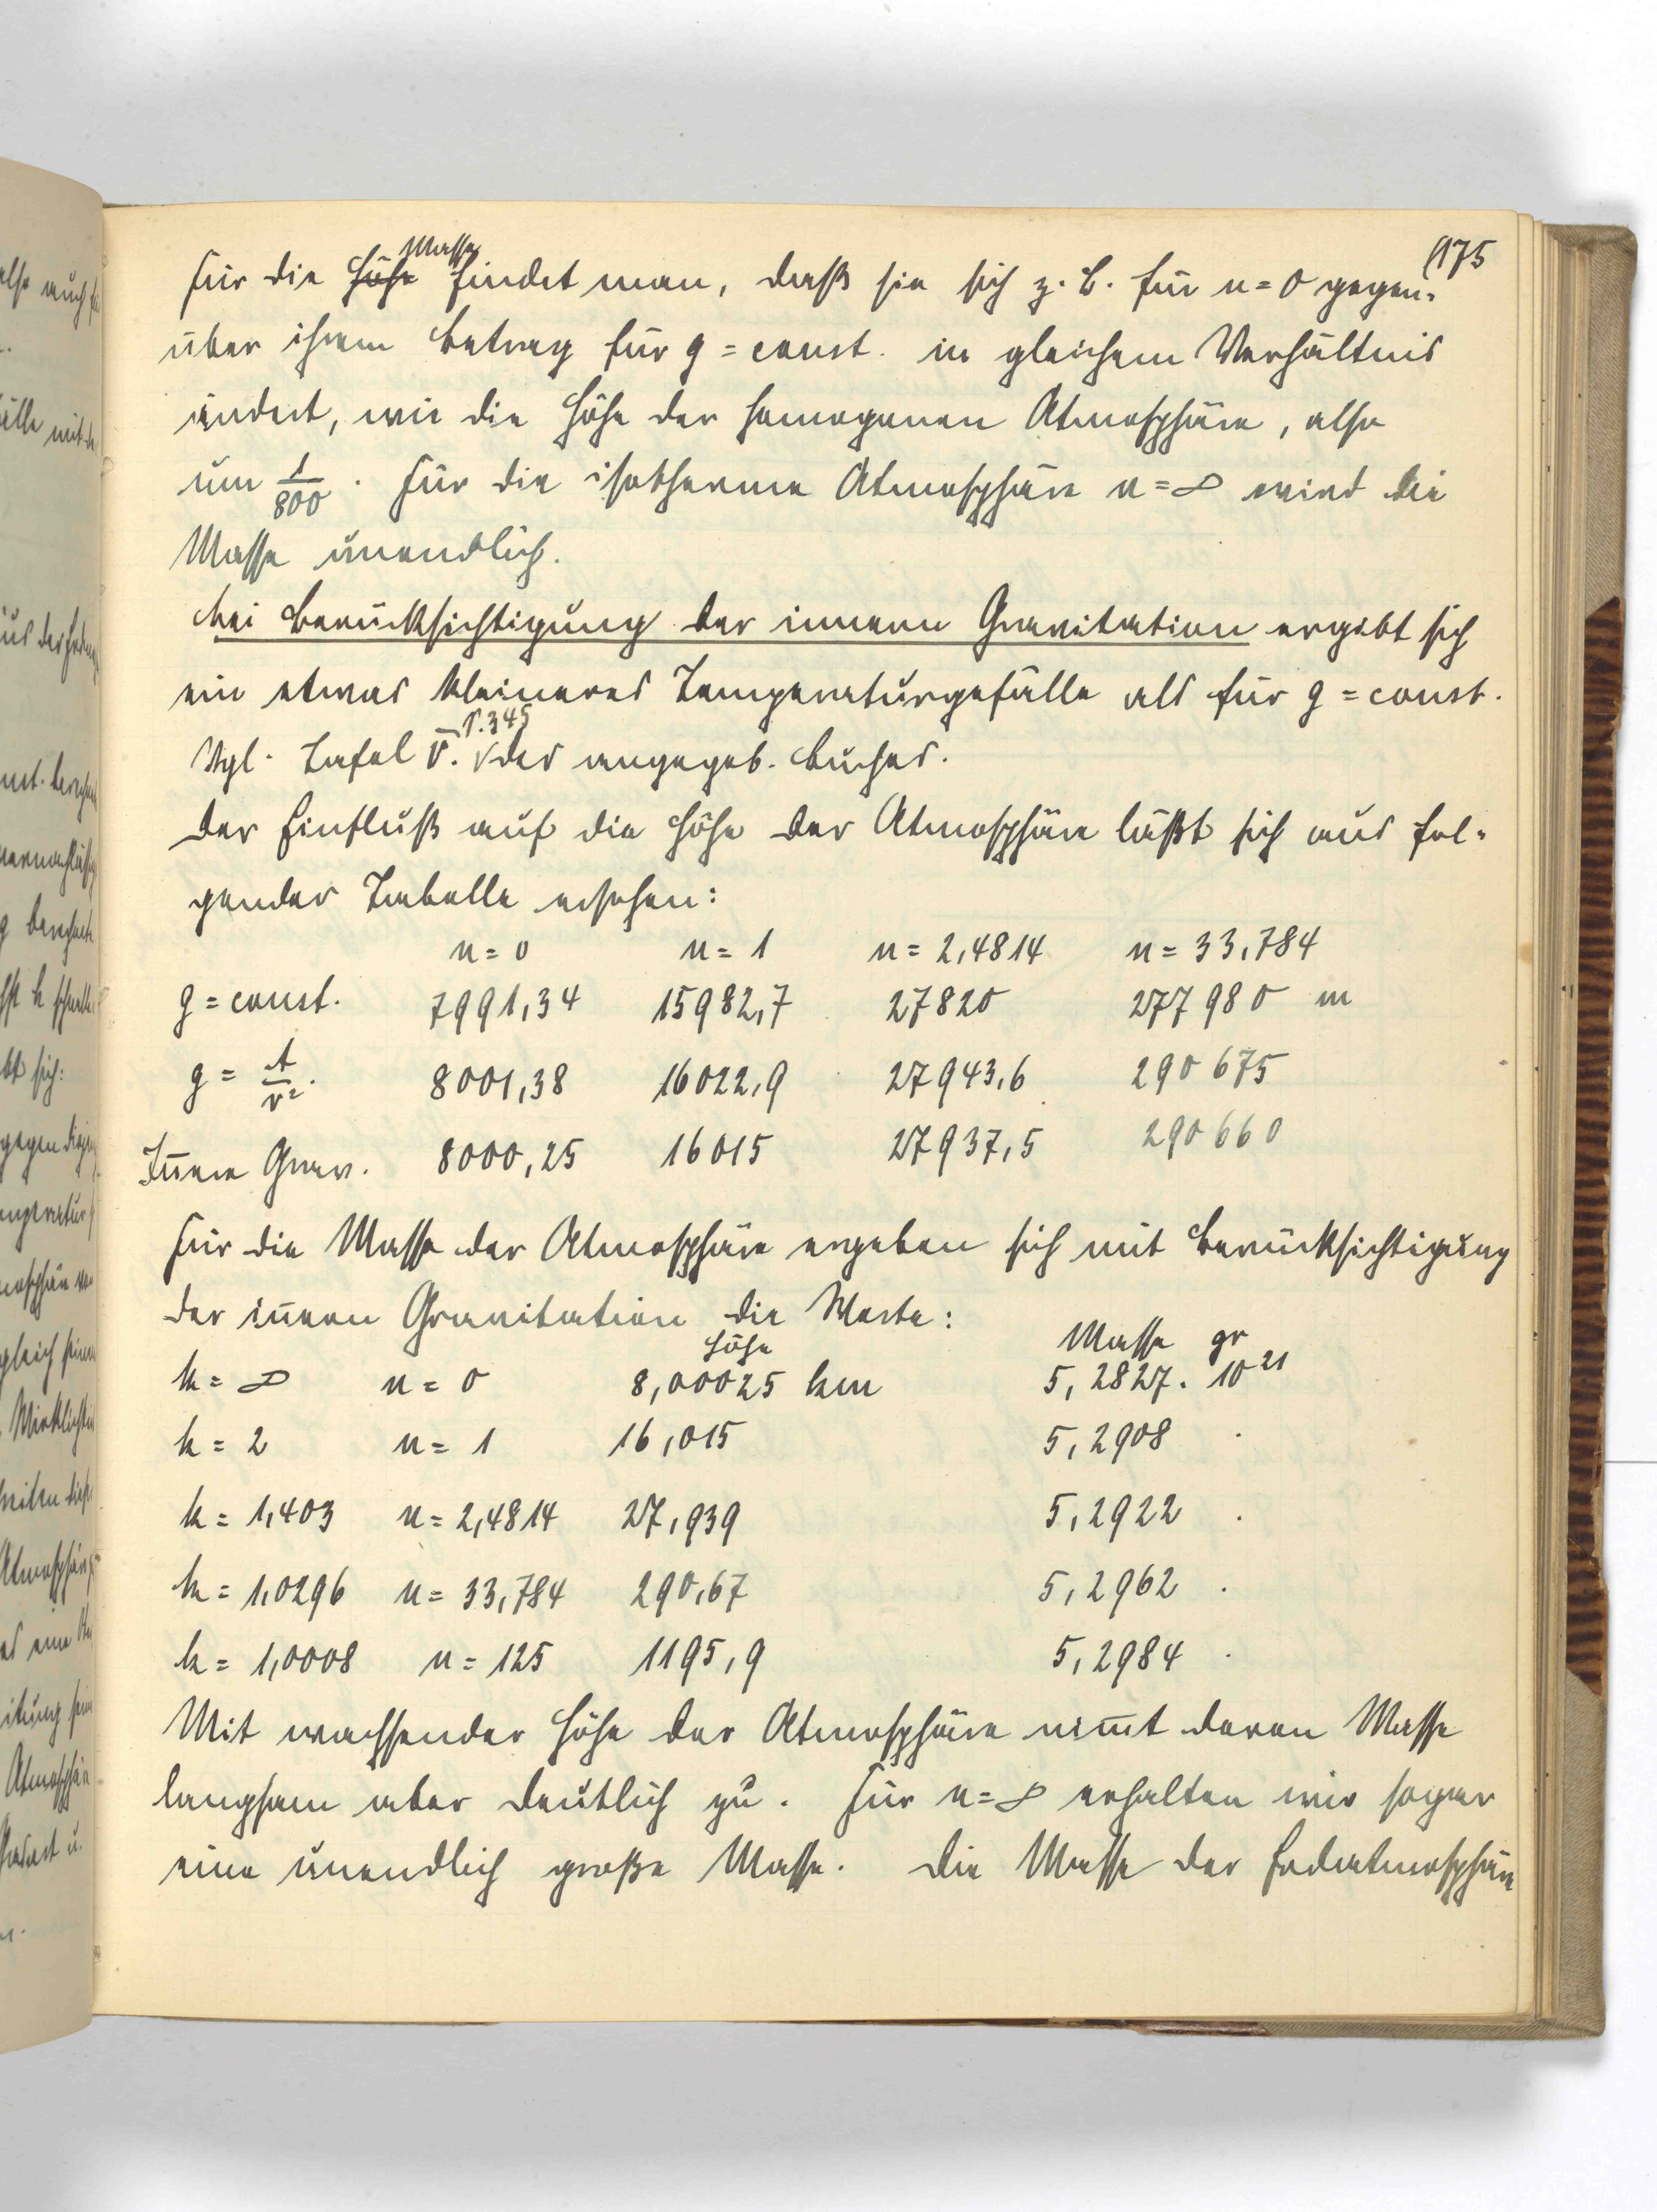 175
Für die Höhe Masse findet man, daß sie sich z. B. für n = 0 gegen-
über ihrem Betrag für g = const. in gleichem Verhältnis
ändert, wie die Höhe der homogenen Atmosphäre, also
um 1/800. Für die isotherme Atmosphäre n = ∞ wird die
Masse unendlich.
Bei Berücksichtigung der innern Gravitation ergibt sich
ein etwas kleineres Temperaturgefälle als für g = const.
Vgl. Tafel V. S. 345 des angegeb. Buches.
Der Einfluß auf die Höhe der Atmosphäre läßt sich aus fol-
gender Tabelle ersehen:
n = 0 n = 1 n = 2,4814 n = 33,784
g = const. 7991,34 15982,7 27820 277980 m
g = A/r². 8001,38 16022,9 27943,6 290675
Innere Grav. 8000,25 16015 27937,5 290660
Für die Masse der Atmosphäre ergeben sich mit Berücksichtigung
der innern Gravitation die Werte:
Höhe Masse gr
k = ∞ n = 0 8,00025 km 5,2827 . 10²¹
k = 2 n = 1 16,015 5,2908 .
k = 1,403 n = 2,4814 27,939 5,2922 .
k = 1,0296 n = 33,784 290,67 5,2962 .
k = 1,0008 n = 125 1195,9 5,2984 .
Mit wachsender Höhe der Atmosphäre nimmt deren Masse
langsam aber deutlich zu. Für n = ∞ erhalten wir sogar
eine unendlich große Masse. Die Masse der Erdatmosphäre